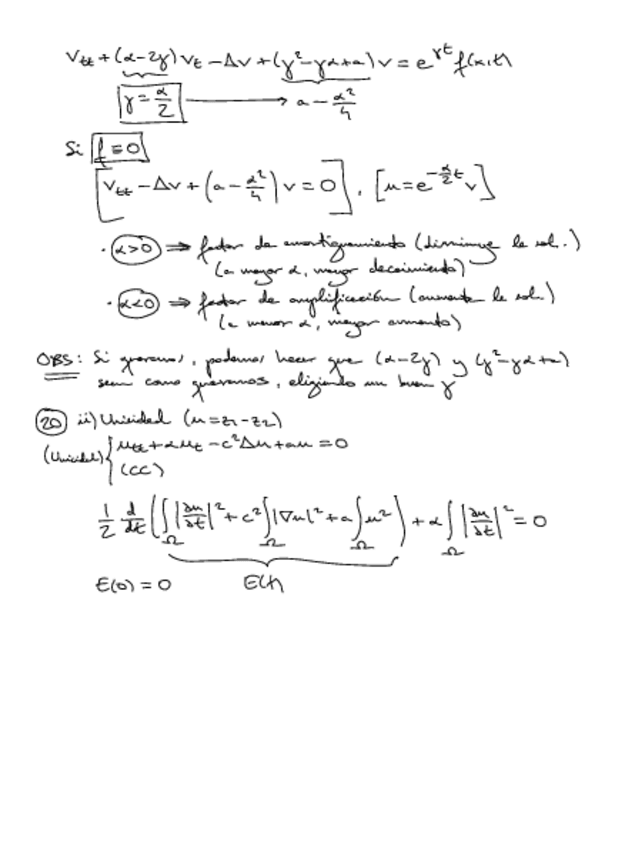 V_tt + (α-2γ) V_t - ΔV + (γ²-γα+a) V = e^{γt} f(x,t)
γ = α/2 → a - α²/4
Si f ≡ 0
[V_tt - ΔV + (a - α²/4) V = 0], [u = e^{-α/2 t} V]
· α>0 ⇒ factor de amortiguamiento (disminuye la sol.)
(a mayor α, mayor decaimiento)
· α<0 ⇒ factor de amplificación (aumenta la sol.)
(a menor α, mayor aumento)
OBS: Si queremos, podemos hacer que (α-2γ) y (γ²-γα+a)
sean como queramos, eligiendo un buen γ
20 ii) Unicidad (u = z1 - z2)
(Unicidad) { u_tt + αu_t - c²Δu + au = 0
(CC)
1/2 d/dt (∫_Ω |∂u/∂t|² + c² ∫_Ω |∇u|² + a ∫_Ω u²) + α ∫_Ω |∂u/∂t|² = 0
E(0) = 0 E(t)